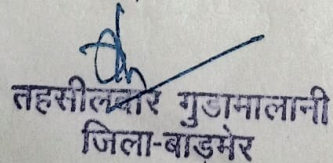 तहसीलदार गुडामालानी
जिला-बाडमेर